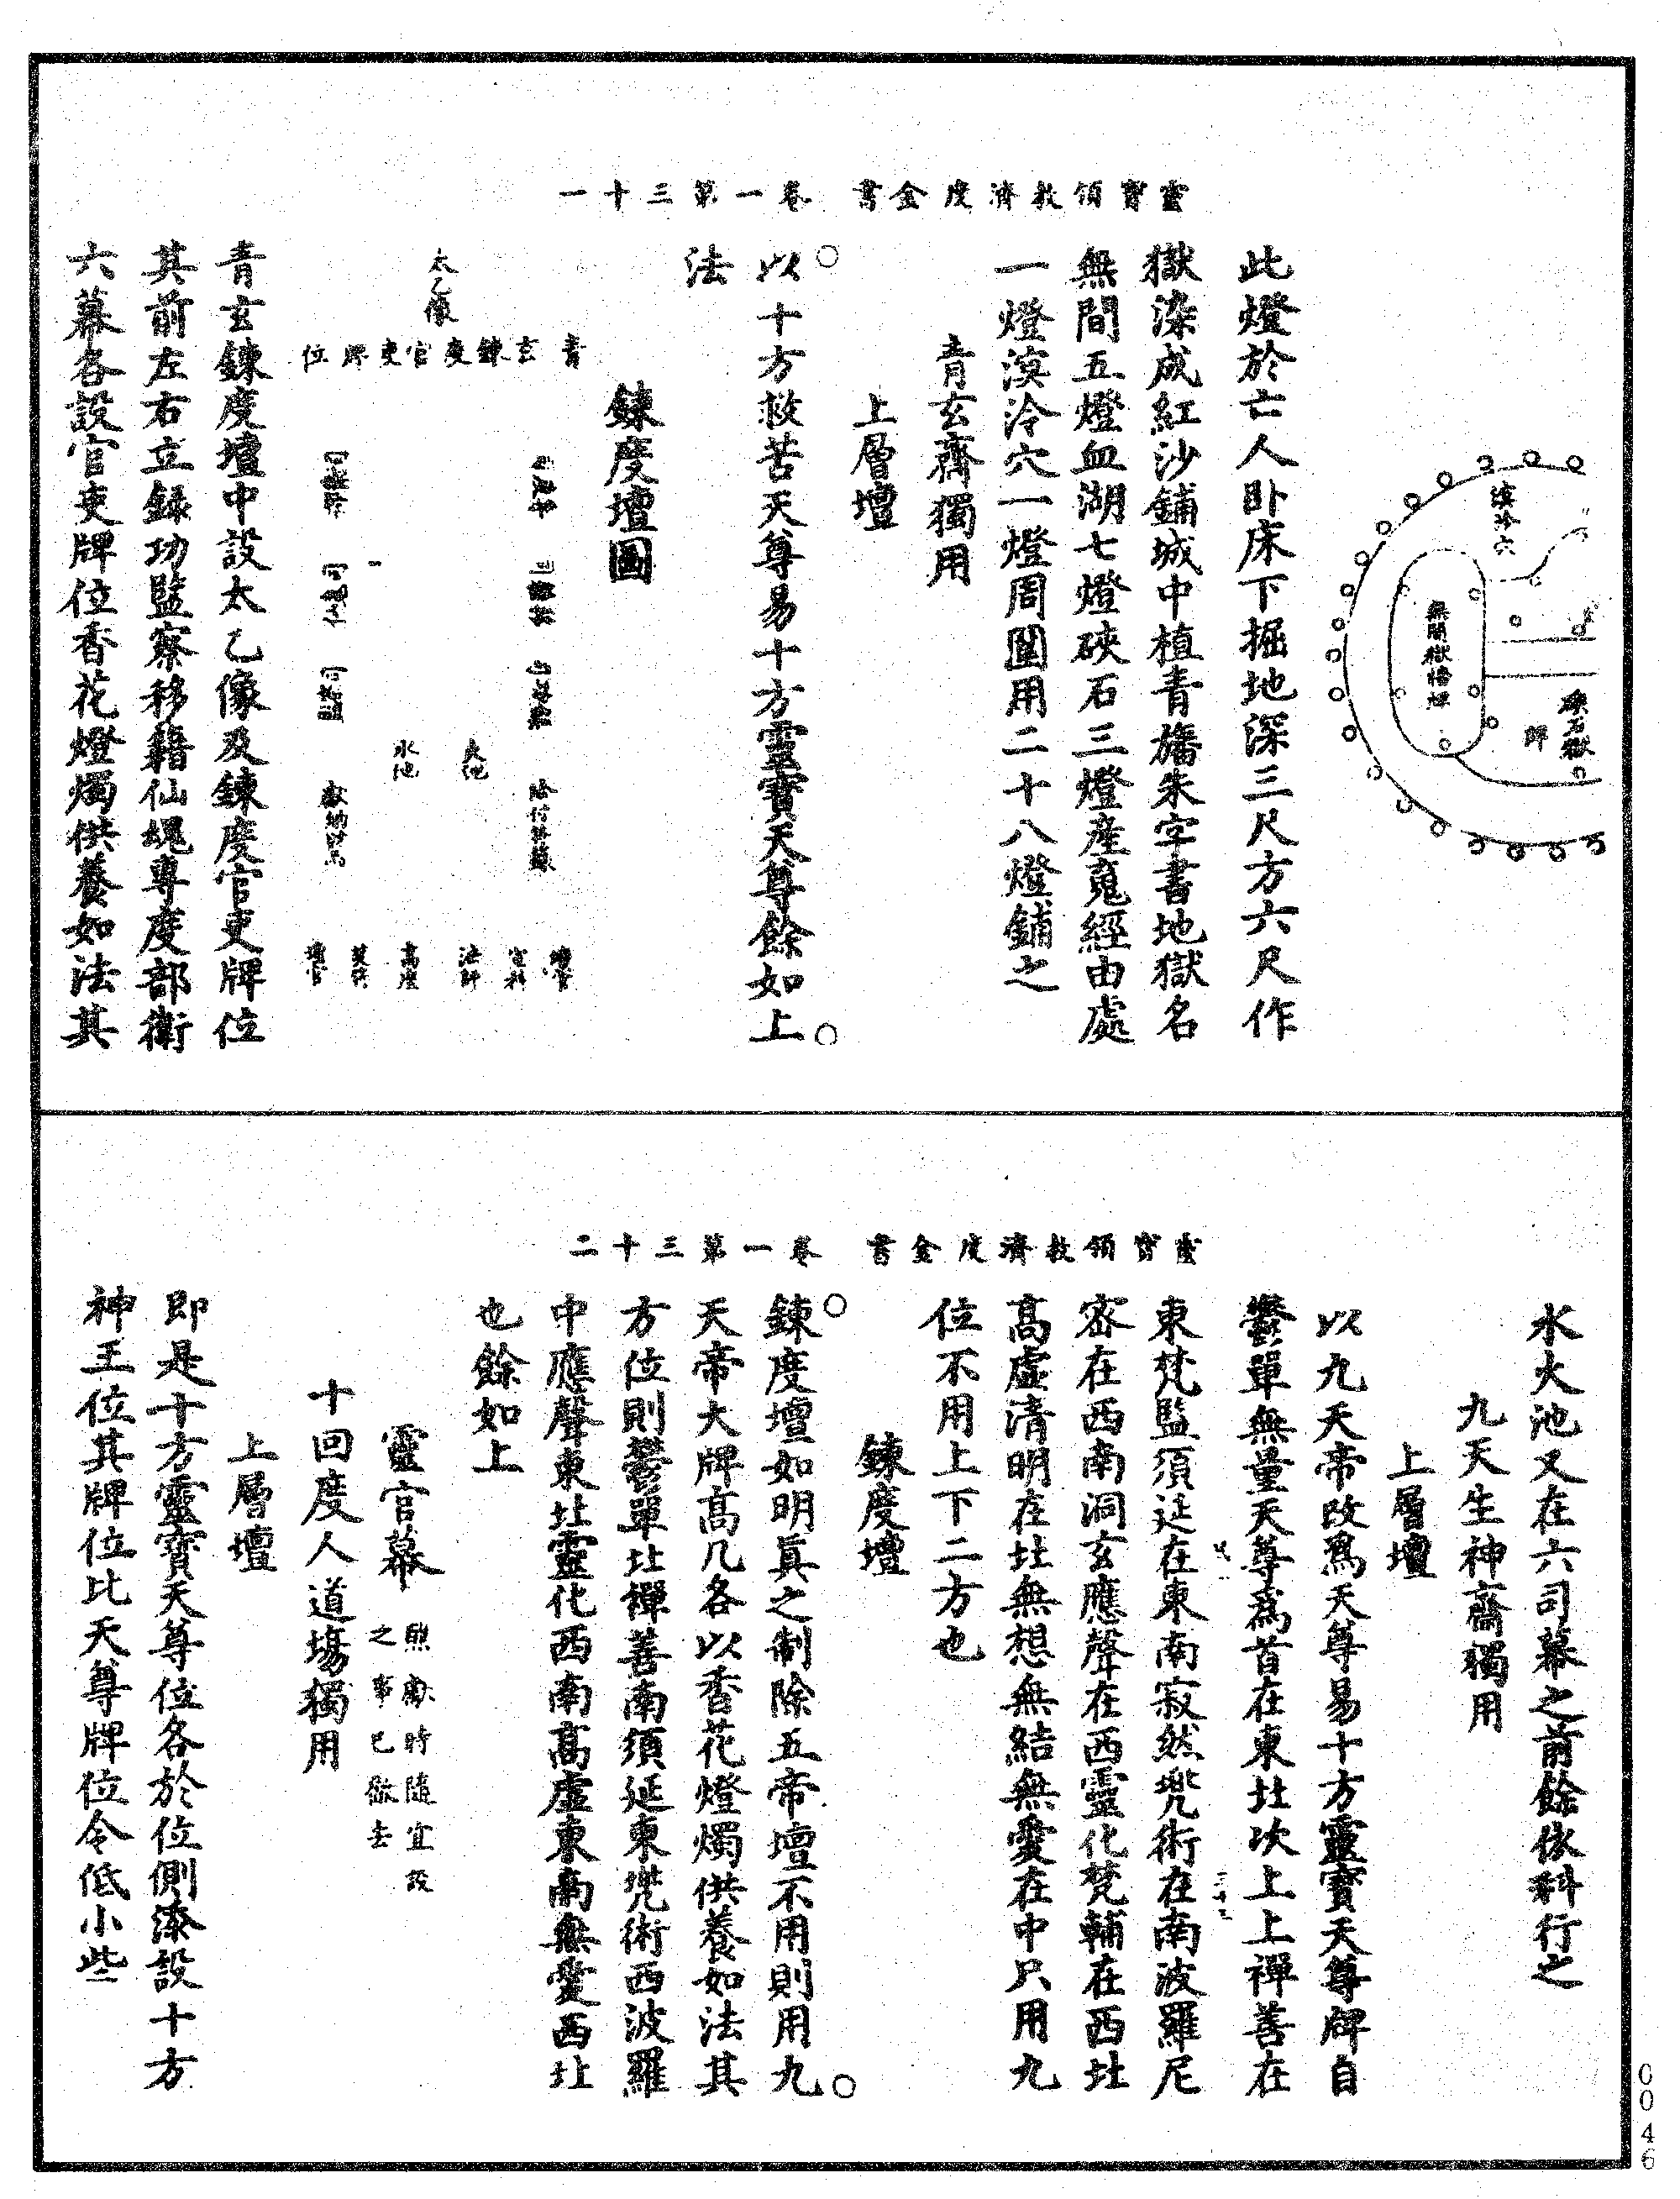 靈寶領教濟度金書 卷一第三十一
溟泠穴
無間獄
硤石獄
牌
此燈於亡人卧床下掘地深三尺方六尺作
獄染成紅沙鋪城中植青旛朱字書地獄名
無間五燈血湖七燈硤石三燈産䰟經由處
一燈溟泠穴一燈周圍用二十八燈鋪之
青玄齋獨用
上層壇
以十方救苦天尊易十方靈寶天尊餘如上
法
鍊度壇圖
太乙像
青玄鍊度官吏牌位
火池
水池
法師
高座
青玄鍊度壇中設太乙像及鍊度官吏牌位
其前左右立録功監察移籍仙䰟專度部衛
六幕各設官吏牌位香花燈燭供養如法其
靈寶領教濟度金書 卷一第三十二
水火池又在六司幕之前餘依科行之
九天生神齋獨用
上層壇
以九天帝改爲天尊易十方靈寶天尊牌自
鬱單無量天尊爲首在東北次上上禪善在
東梵監須延在東南寂然兠術在南波羅尼
宻在西南洞玄應聲在西靈化梵輔在西北
髙虛清明在北無想無結無愛在中只用九
位不用上下二方也
鍊度壇
鍊度壇如明眞之制除五帝壇不用則用九
天帝大牌髙几各以香花燈燭供養如法其
方位則鬱單北禪善南須延東兠術西波羅
中應聲東北靈化西南髙虛東南無愛西北
也餘如上
靈官幕 醮獻時隨宜設之事已徹去
十回度人道場獨用
上層壇
即是十方靈寶天尊位各於位側添設十方
神王位其牌位比天尊牌位令低小些
0046